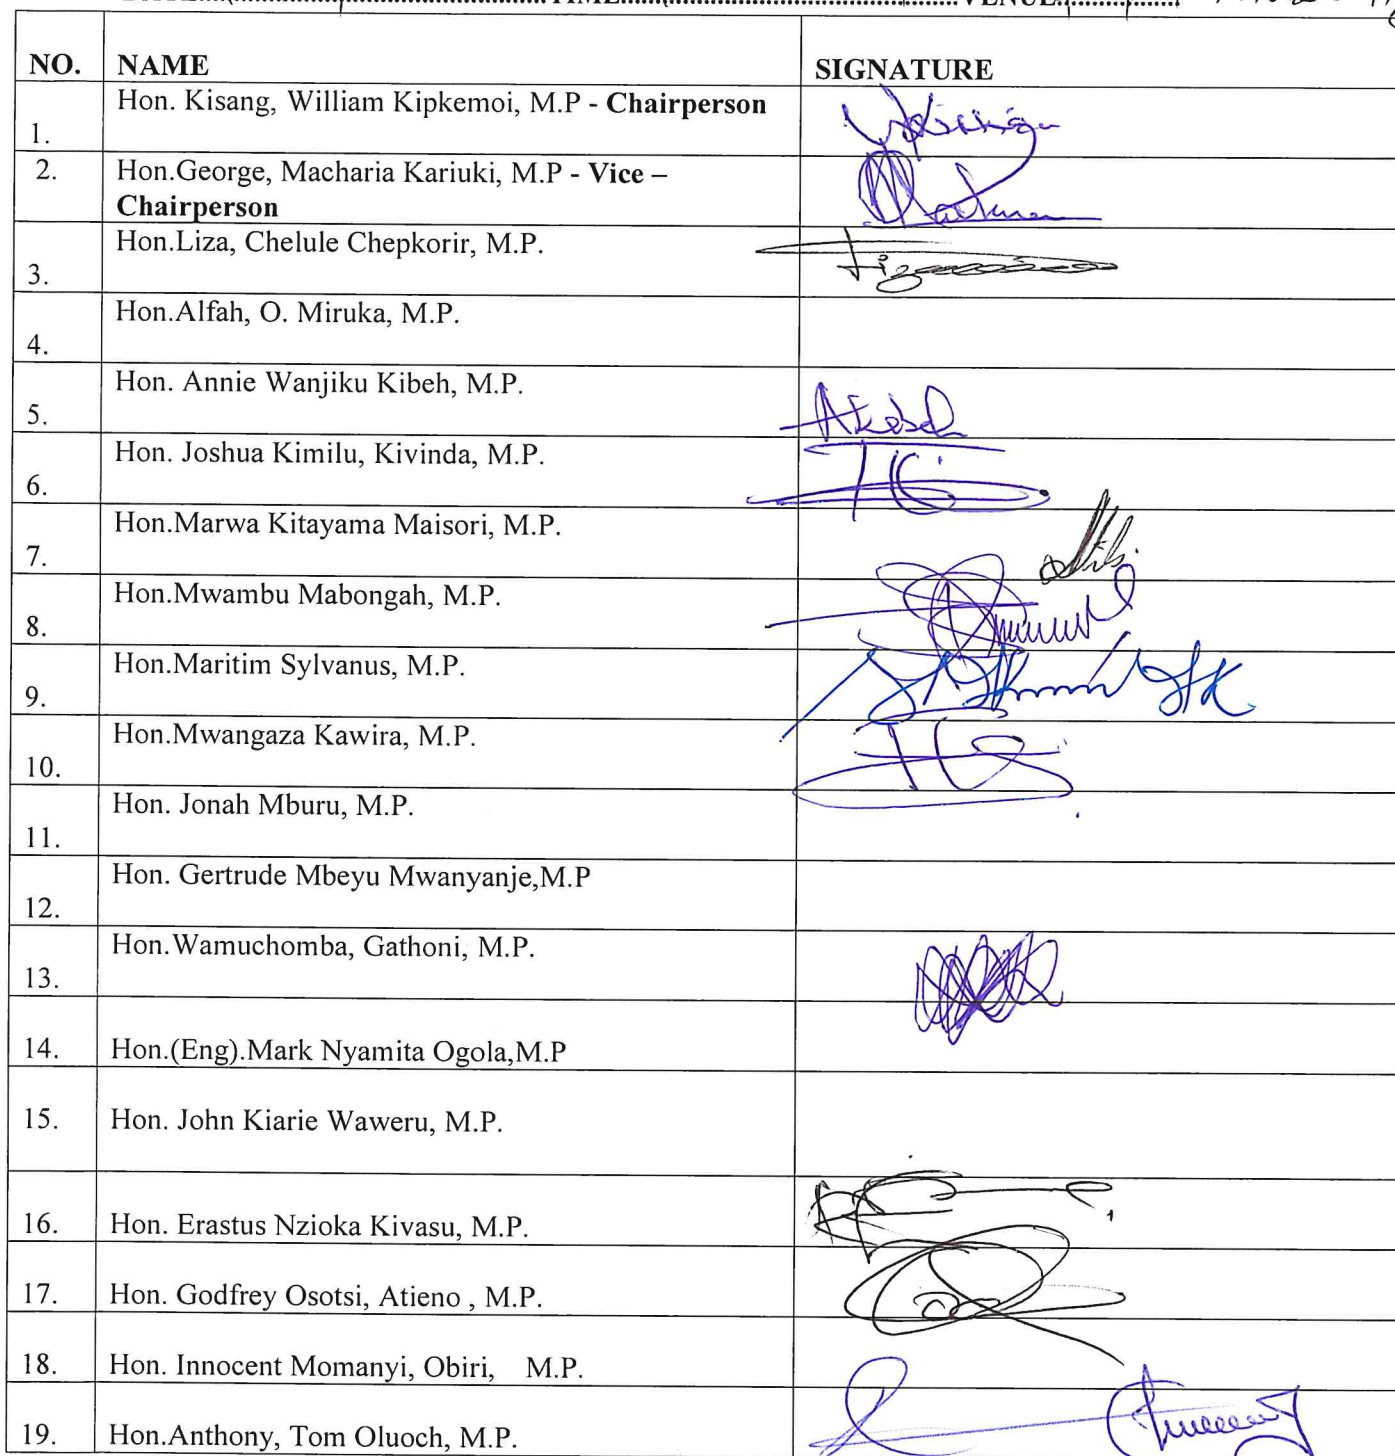 TIME VENUE
NO. NAME SIGNATURE
1. Hon. Kisang, William Kipkemoi, M.P - Chairperson
2. Hon.George, Macharia Kariuki, M.P - Vice –
Chairperson
3. Hon.Liza, Chelule Chepkorir, M.P.
4. Hon.Alfah, O. Miruka, M.P.
5. Hon. Annie Wanjiku Kibeh, M.P.
6. Hon. Joshua Kimilu, Kivinda, M.P.
7. Hon.Marwa Kitayama Maisori, M.P.
8. Hon.Mwambu Mabongah, M.P.
9. Hon.Maritim Sylvanus, M.P.
10. Hon.Mwangaza Kawira, M.P.
11. Hon. Jonah Mburu, M.P.
12. Hon. Gertrude Mbeyu Mwanyanje,M.P
13. Hon.Wamuchomba, Gathoni, M.P.
14. Hon.(Eng).Mark Nyamita Ogola,M.P
15. Hon. John Kiarie Waweru, M.P.
16. Hon. Erastus Nzioka Kivasu, M.P.
17. Hon. Godfrey Osotsi, Atieno , M.P.
18. Hon. Innocent Momanyi, Obiri, M.P.
19. Hon.Anthony, Tom Oluoch, M.P.